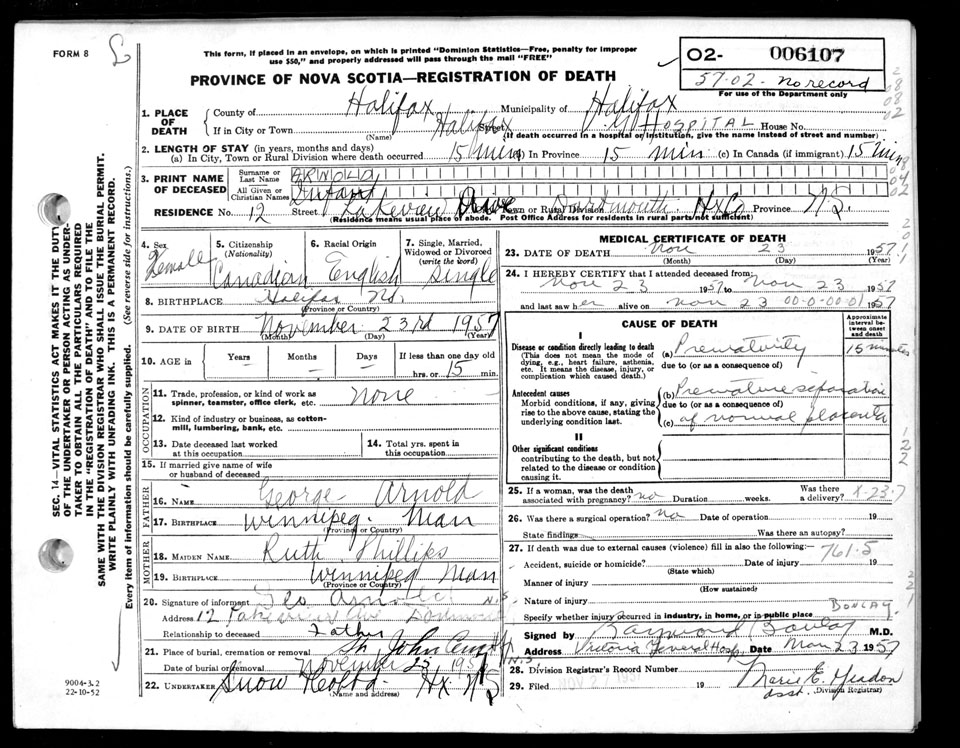 FORM 8
This form, if placed in an envelope, on which is printed "Dominion Statistics—Free, penalty for improper
use $50," and properly addressed will pass through the mail "FREE"
PROVINCE OF NOVA SCOTIA—REGISTRATION OF DEATH
02- 006107
57-02- No record
For use of the Department only
SEC. 14—VITAL STATISTICS ACT MAKES IT THE DUTY
OF THE UNDERTAKER OR PERSON ACTING AS UNDER-
TAKER TO OBTAIN ALL THE PARTICULARS REQUIRED
IN THE "REGISTRATION OF DEATH" AND TO FILE THE
SAME WITH THE DIVISION REGISTRAR WHO SHALL ISSUE THE BURIAL PERMIT.
WRITE PLAINLY WITH UNFADING INK. THIS IS A PERMANENT RECORD.
Every item of information should be carefully supplied. (See reverse side for instructions.)
1. PLACE OF DEATH
County of Halifax Municipality of Halifax
If in City or Town Halifax Street HOSPITAL House No.
(Name) (If death occurred in a hospital or institution, give the name instead of street and number)
2. LENGTH OF STAY (in years, months and days)
(a) In City, Town or Rural Division where death occurred 15 min (b) In Province 15 min (c) In Canada (if immigrant) 15 min
3. PRINT NAME OF DECEASED
Surname or Last Name ARNOLD
All Given or Christian Names Infant
RESIDENCE No. 12 Street Lakeview Drive Town or Rural Division Dartmouth Hx Co Province N.S.
(Residence means usual place of abode. Post Office Address for residents in rural parts not sufficient)
4. Sex Female
5. Citizenship (Nationality) Canadian
6. Racial Origin English
7. Single, Married, Widowed or Divorced (write the word) Single
8. BIRTHPLACE Halifax N.S.
(Province or Country)
9. DATE OF BIRTH November 23rd 1957
(Month) (Day) (Year)
10. AGE in Years Months Days If less than one day old
hrs. or 15 min.
OCCUPATION
11. Trade, profession, or kind of work as
spinner, teamster, office clerk, etc. None
12. Kind of industry or business, as cotton-
mill, lumbering, bank, etc.
13. Date deceased last worked
at this occupation
14. Total yrs. spent in
this occupation
15. If married give name of wife
or husband of deceased
FATHER
16. NAME George Arnold
17. BIRTHPLACE Winnipeg. Man
(Province or Country)
MOTHER
18. MAIDEN NAME Ruth Phillips
19. BIRTHPLACE Winnipeg Man
(Province or Country)
20. Signature of informant Geo Arnold
Address 12 Lakeview N.S.
Relationship to deceased Father
21. Place of burial, cremation or removal St. John
Date of burial or removal November 25 1957
22. UNDERTAKER Snow Hx. N.S
(Name and address)
9004-3.2
22-10-52
MEDICAL CERTIFICATE OF DEATH
23. DATE OF DEATH Nov 23 1957
(Month) (Day) (Year)
24. I HEREBY CERTIFY that I attended deceased from:
Nov 23 1957 to Nov 23 1957
and last saw her alive on Nov 23 00-0-00-01 1957
CAUSE OF DEATH
Approximate interval between onset and death
I
Disease or condition directly leading to death
(This does not mean the mode of
dying, e.g., heart failure, asthenia,
etc. It means the disease, injury, or
complication which caused death.)
(a) Prematurity 15 minutes
due to (or as a consequence of)
Antecedent causes
Morbid conditions, if any, giving
rise to the above cause, stating the
underlying condition last.
(b) Premature separation
due to (or as a consequence of)
(c) of normal placenta
II
Other significant conditions
contributing to the death, but not
related to the disease or condition
causing it.
25. If a woman, was the death
associated with pregnancy? no Duration weeks. Was there
a delivery?
26. Was there a surgical operation? No Date of operation 19
State findings Was there an autopsy?
27. If death was due to external causes (violence) fill in also the following:— 761.5
Accident, suicide or homicide? Date of injury 19
(State which)
Manner of injury
(How sustained)
Nature of injury
BOULAY
Specify whether injury occurred in industry, in home, or in public place
Signed by Raymond Boulay M.D.
Address Victoria General Hosp. Date Nov 23 1957
N.S.
28. Division Registrar's Record Number
29. Filed NOV 27 1957 19 Marie E.
Asst. (Division Registrar)